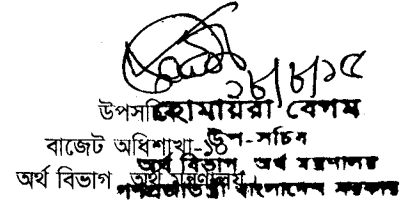 ১৮/৮/১৫
উপসচিব
হোমায়রা বেগম
উপ-সচিব
বাজেট অধিশাখা-১৪
অর্থ বিভাগ অর্থ মন্ত্রণালয়
অর্থ বিভাগ, অর্থ মন্ত্রণালয়।
গণপ্রজাতন্ত্রী বাংলাদেশ সরকার